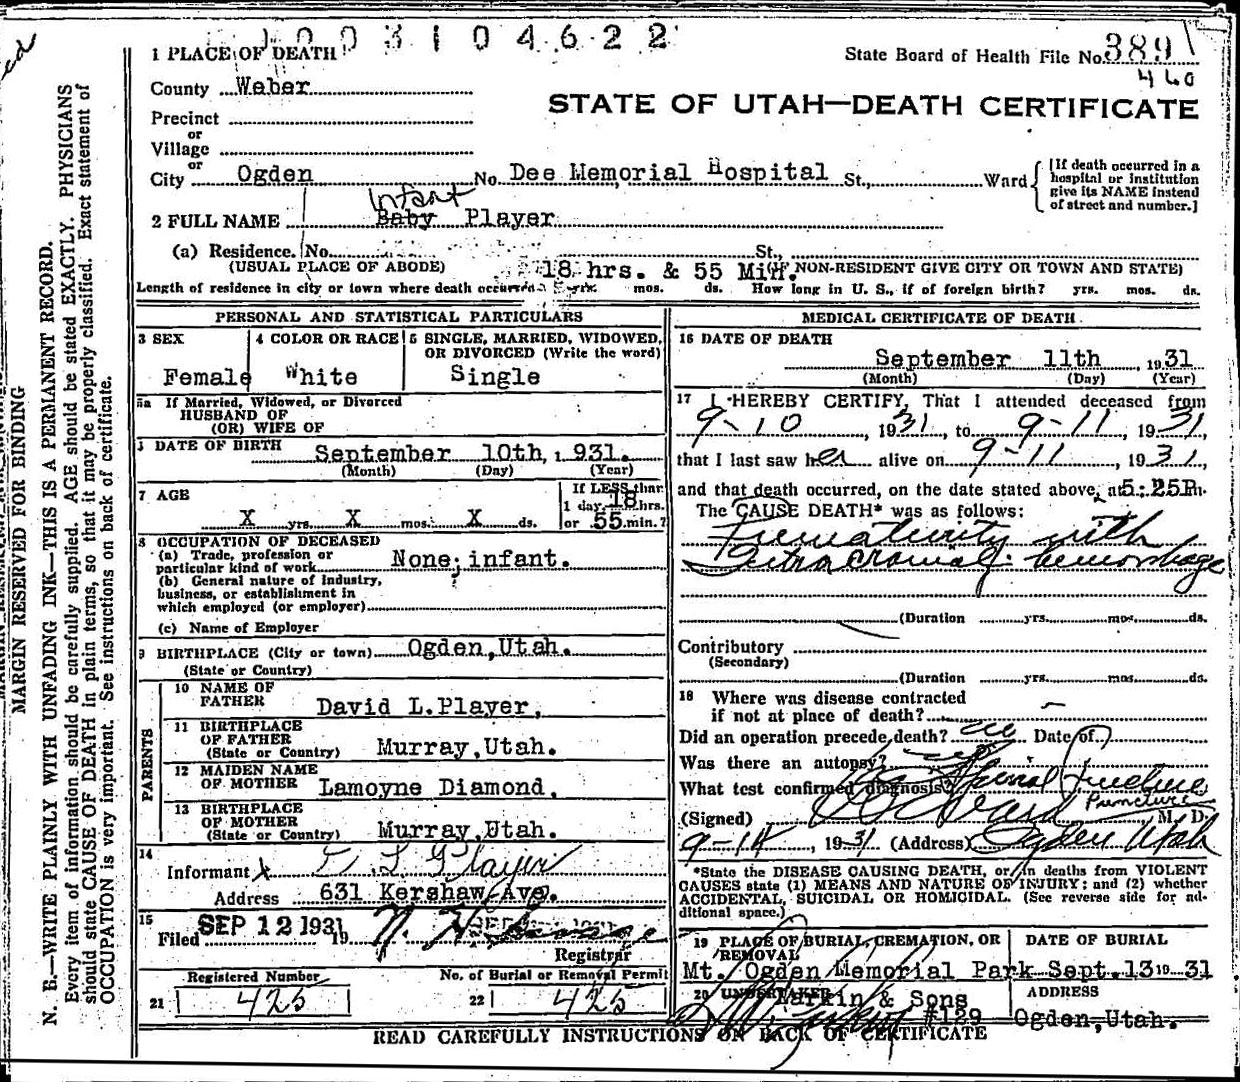 1003104622
1 PLACE OF DEATH
State Board of Health File No. 389
460
County Weber
STATE OF UTAH—DEATH CERTIFICATE
Precinct
or
Village
or
City Ogden No. Dee Memorial Hospital St., Ward
[If death occurred in a hospital or institution give its NAME instead of street and number.]
Infant
2 FULL NAME Baby Player
(a) Residence. No. St.,
(USUAL PLACE OF ABODE) 18 hrs. & 55 Min. (IF NON-RESIDENT GIVE CITY OR TOWN AND STATE)
Length of residence in city or town where death occurred yrs. mos. ds. How long in U. S., if of foreign birth? yrs. mos. ds.
PERSONAL AND STATISTICAL PARTICULARS
3 SEX
Female
4 COLOR OR RACE
White
5 SINGLE, MARRIED, WIDOWED, OR DIVORCED (Write the word)
Single
5a If Married, Widowed, or Divorced
HUSBAND OF
(OR) WIFE OF
DATE OF BIRTH September 10th, 1931.
(Month) (Day) (Year)
7 AGE
X yrs. X mos. X ds.
If LESS than
1 day 18 hrs.
or 55 min.?
8 OCCUPATION OF DECEASED
(a) Trade, profession or
particular kind of work None; infant.
(b) General nature of industry,
business, or establishment in
which employed (or employer)
(c) Name of Employer
9 BIRTHPLACE (City or town) Ogden, Utah.
(State or Country)
PARENTS
10 NAME OF
FATHER David L. Player.
11 BIRTHPLACE
OF FATHER
(State or Country) Murray, Utah.
12 MAIDEN NAME
OF MOTHER Lamoyne Diamond.
13 BIRTHPLACE
OF MOTHER
(State or Country) Murray, Utah.
14
Informant X D L Player
Address 631 Kershaw Ave.
15
Filed SEP 12 1931 19
Registrar
Registered Number
21 425
No. of Burial or Removal Permit
22 425
MEDICAL CERTIFICATE OF DEATH
16 DATE OF DEATH
September 11th 1931
(Month) (Day) (Year)
17 I HEREBY CERTIFY, That I attended deceased from
9-10, 1931, to 9-11, 1931,
that I last saw her alive on 9-11, 1931,
and that death occurred, on the date stated above, at 5:25P.m.
The CAUSE DEATH* was as follows:
Prematurity with
Intra cranial hemorrhage
(Duration yrs. mos. ds.
Contributory
(Secondary)
(Duration yrs. mos. ds.
18 Where was disease contracted
if not at place of death?
Did an operation precede death? no Date of
Was there an autopsy?
What test confirmed diagnosis? Spinal Puncture
(Signed) M. D.
9-14, 1931 (Address) Ogden Utah
*State the DISEASE CAUSING DEATH, or in deaths from VIOLENT
CAUSES state (1) MEANS AND NATURE OF INJURY; and (2) whether
ACCIDENTAL, SUICIDAL OR HOMICIDAL. (See reverse side for ad-
ditional space.)
19 PLACE OF BURIAL, CREMATION, OR
REMOVAL
Mt. Ogden Memorial Park
DATE OF BURIAL
Sept. 13 19 31
20 UNDERTAKER
Larkin & Sons
#129
ADDRESS
Ogden, Utah.
READ CAREFULLY INSTRUCTIONS ON BACK OF CERTIFICATE
MARGIN RESERVED FOR BINDING
N. B.—WRITE PLAINLY WITH UNFADING INK—THIS IS A PERMANENT RECORD.
Every item of information should be carefully supplied. AGE should be stated EXACTLY. PHYSICIANS
should state CAUSE OF DEATH in plain terms, so that it may be properly classified. Exact statement of
OCCUPATION is very important. See instructions on back of certificate.